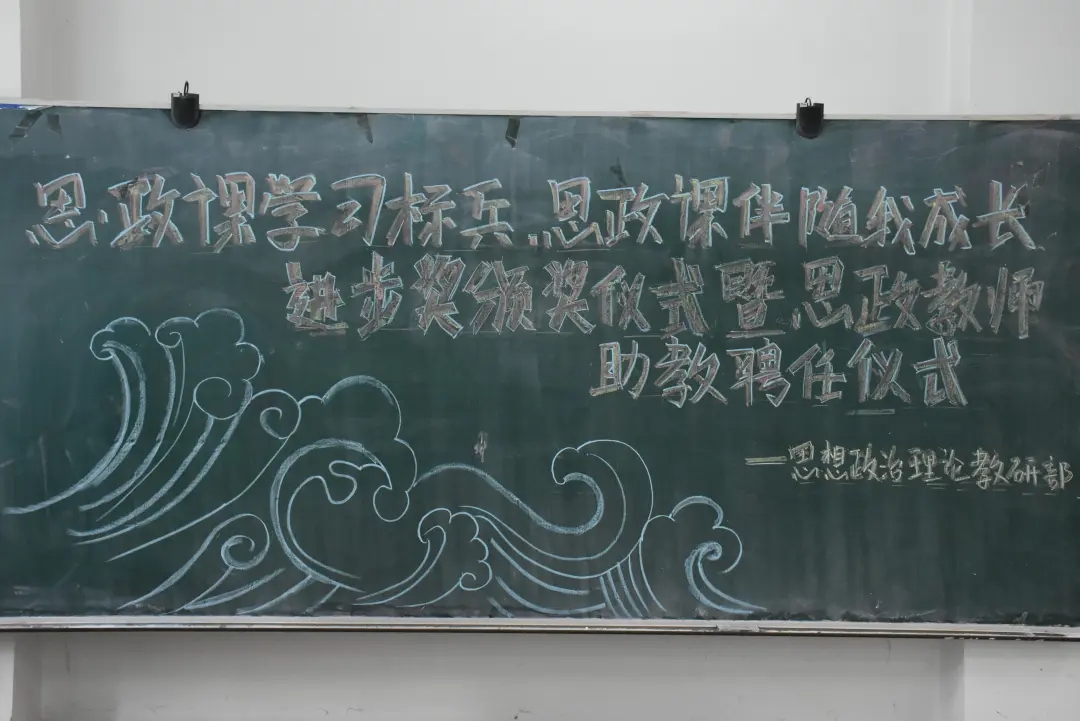 思政课学习标兵.思政课伴随我成长
进步奖颁奖仪式暨思政教师
助教聘任仪式
——思想政治理论教研部